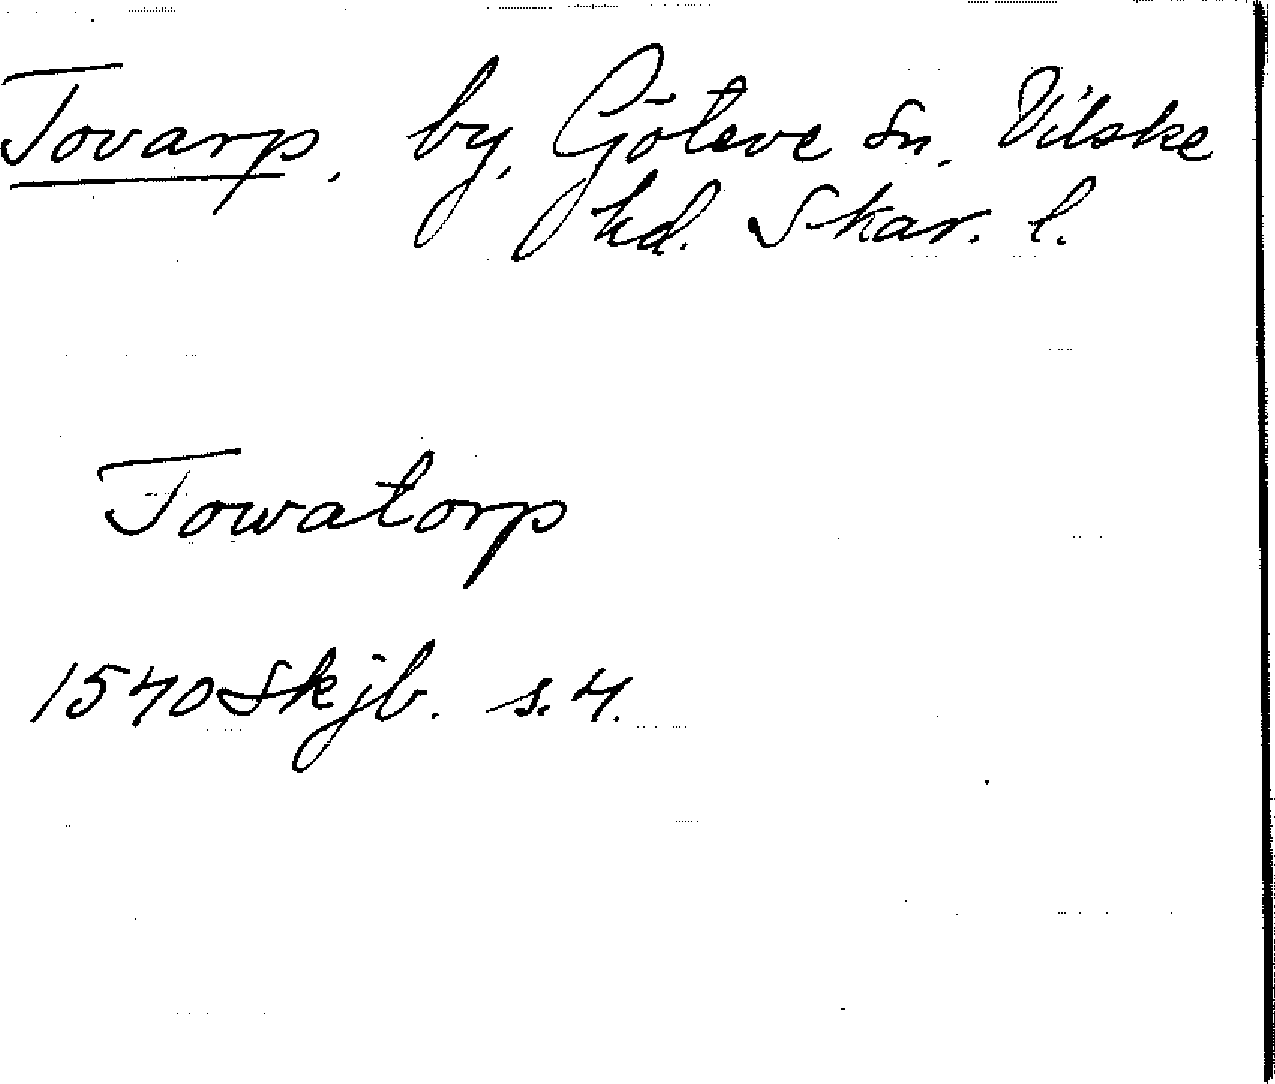 Tovarp. by, Göteve sn. Vilske
hd. Skar. l.
Towatorp
1540 Skjb. s. 4.